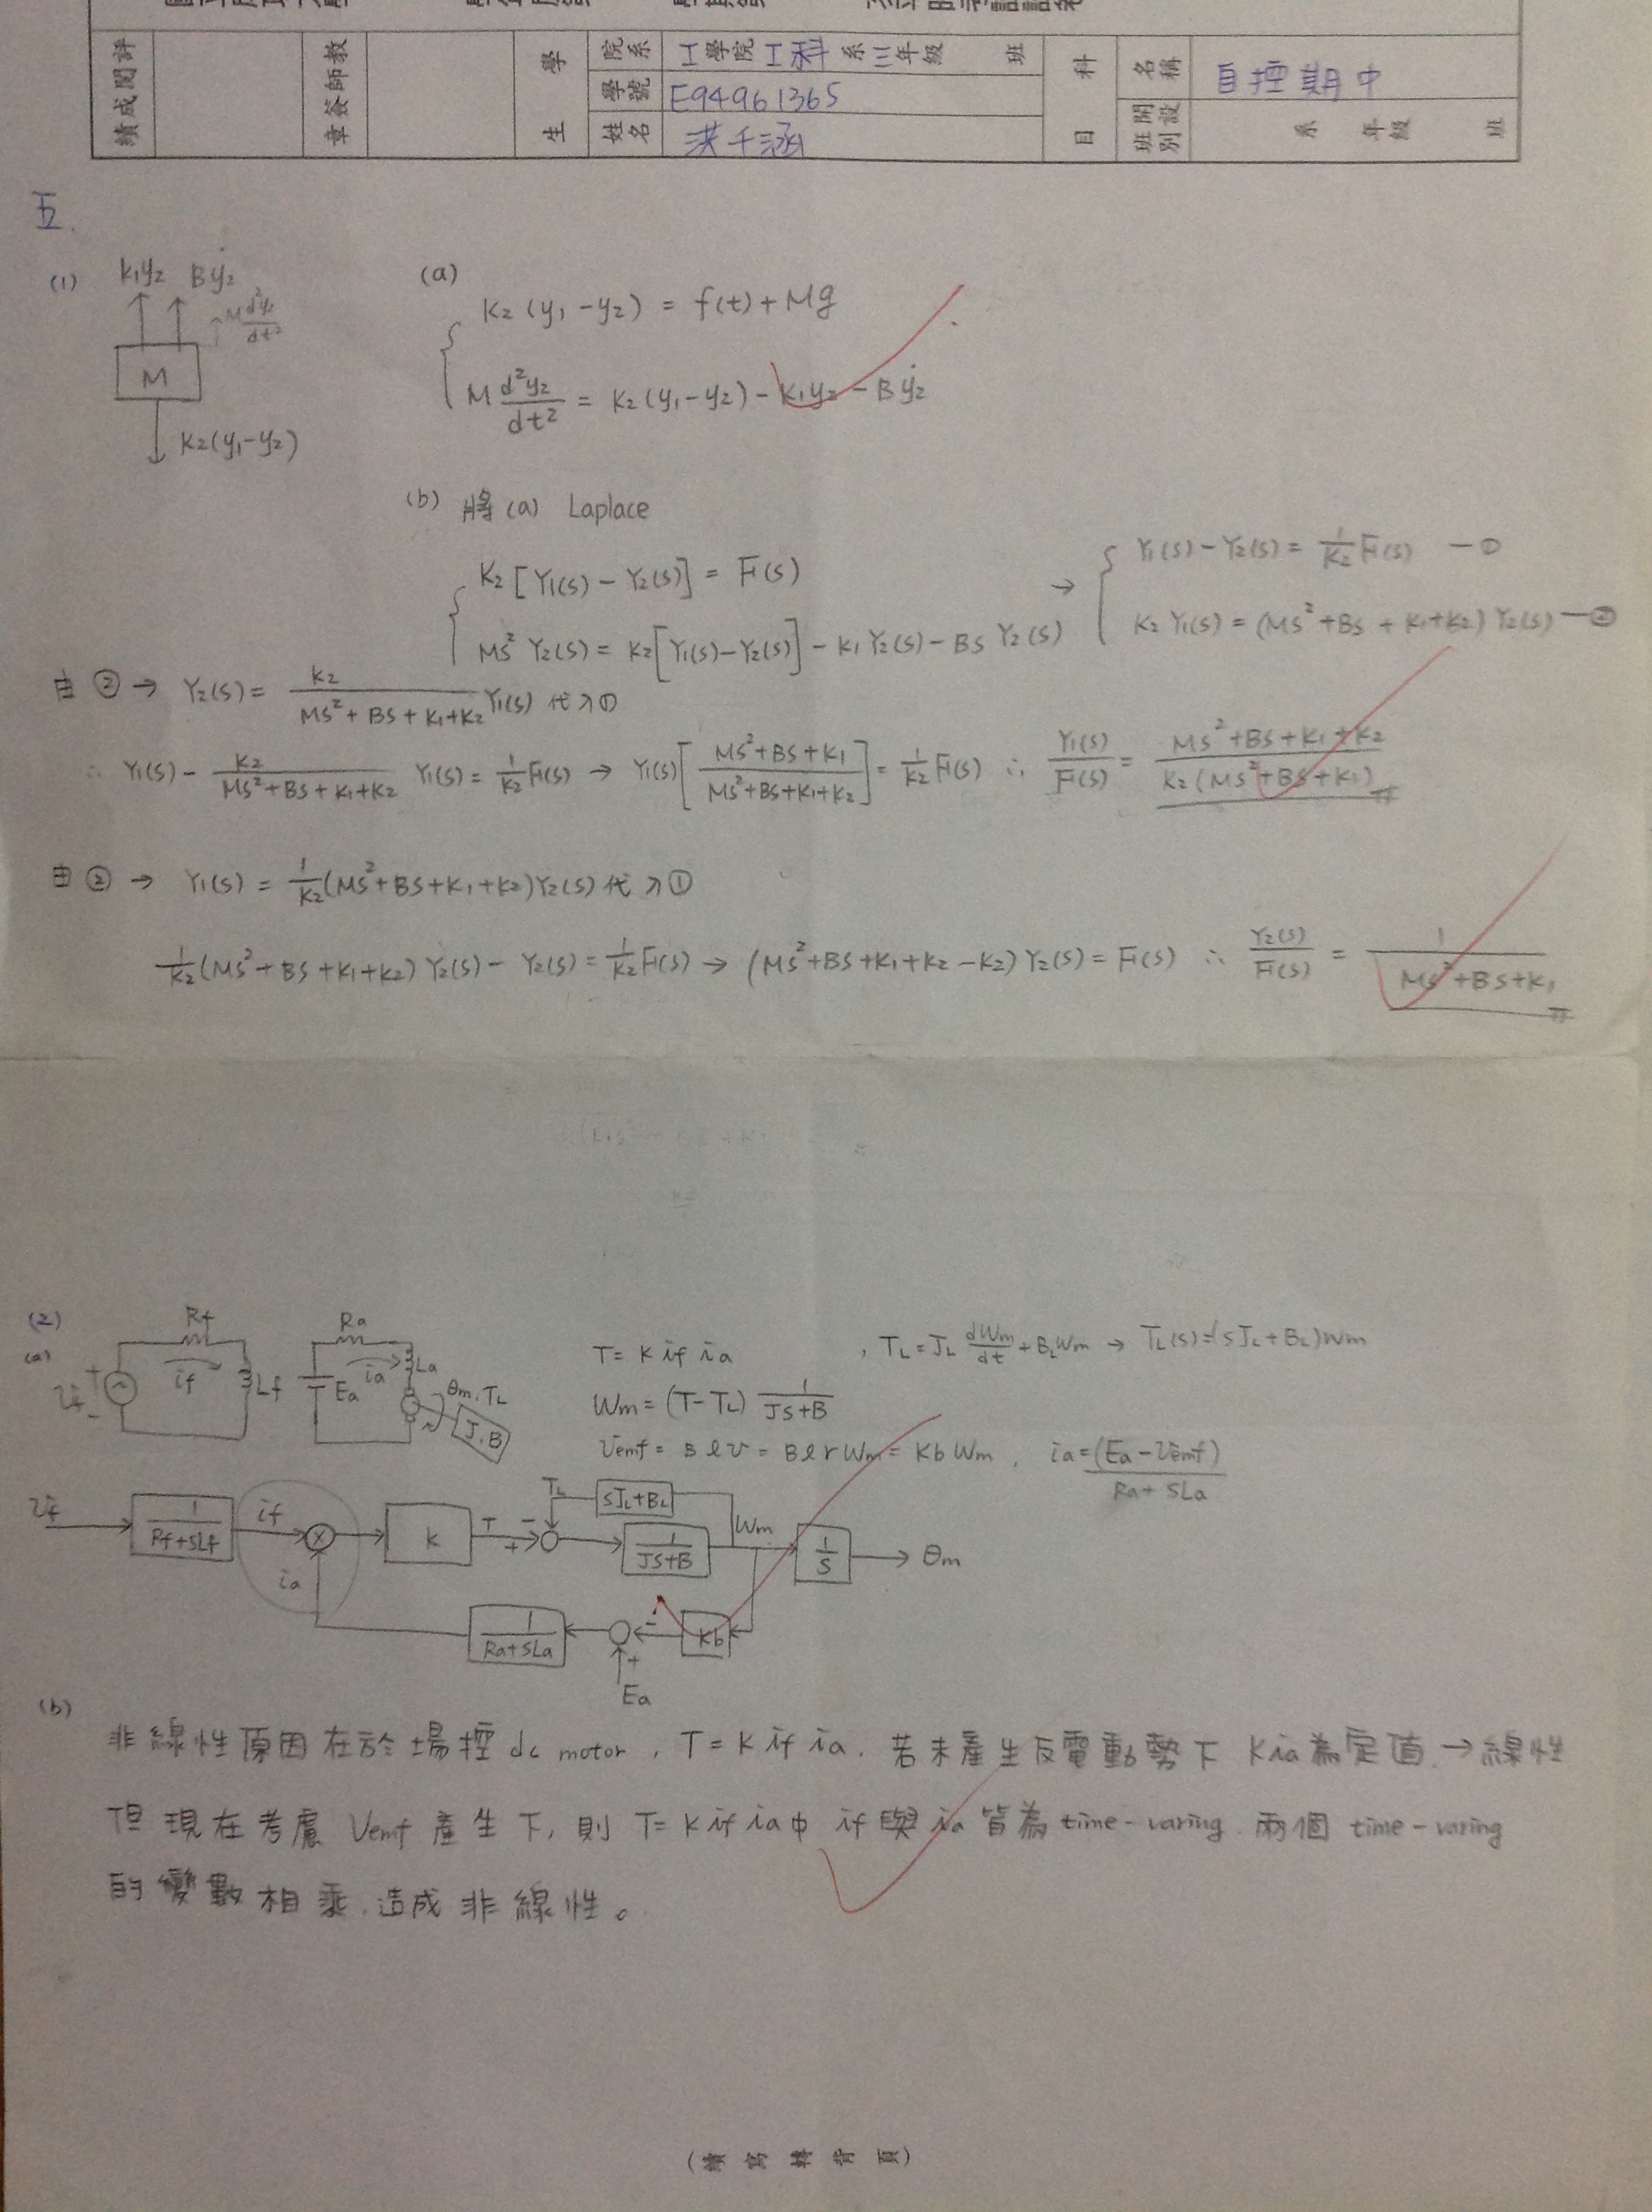 績成閱評
章簽師教
學生
院系 工學院工科系三年級 班
學號 E94961365
姓名 洪千涵
科目
名稱 自控期中
開設班別 系 年級 班
五.
(1) K₁y₂ Bẏ₂
M d²y₂/dt²
M
K₂(y₁-y₂)
(a)
K₂(y₁-y₂) = f(t)+Mg
M d²y₂/dt² = K₂(y₁-y₂)-K₁y₂-Bẏ₂
(b) 將(a) Laplace
K₂[Y₁(s)-Y₂(s)] = F(s)
Ms²Y₂(s) = K₂[Y₁(s)-Y₂(s)]-K₁Y₂(s)-BsY₂(s)
→ Y₁(s)-Y₂(s) = 1/K₂ F(s) —①
K₂Y₁(s) = (Ms²+Bs+K₁+K₂)Y₂(s) —②
由② → Y₂(s) = K₂/(Ms²+Bs+K₁+K₂) Y₁(s) 代入①
∴ Y₁(s) - K₂/(Ms²+Bs+K₁+K₂) Y₁(s) = 1/K₂ F(s) → Y₁(s)[(Ms²+Bs+K₁)/(Ms²+Bs+K₁+K₂)] = 1/K₂ F(s) ∴ Y₁(s)/F(s) = (Ms²+Bs+K₁+K₂)/(K₂(Ms²+Bs+K₁))
由② → Y₁(s) = 1/K₂(Ms²+Bs+K₁+K₂)Y₂(s) 代入①
1/K₂(Ms²+Bs+K₁+K₂)Y₂(s)-Y₂(s) = 1/K₂ F(s) → (Ms²+Bs+K₁+K₂-K₂)Y₂(s) = F(s) ∴ Y₂(s)/F(s) = 1/(Ms²+Bs+K₁)
(2)
(a)
Rf
Vf + - if Lf
Ra
Ea ia La
θm, TL
J, B
T = K if ia , TL = JL dWm/dt + BLWm → TL(s) = (sJL+BL)Wm
Wm = (T-TL) 1/(Js+B)
Vemf = Blv = BlrWm = KbWm , ia = (Ea-Vemf)/(Ra+sLa)
TL sJL+BL
Vf 1/(Rf+sLf) if × K T - + 1/(Js+B) Wm 1/s θm
ia
1/(Ra+sLa) - + Kb
Ea
(b)
非線性原因在於場控 dc motor, T = K if ia. 若未產生反電動勢下 Kia為定值 → 線性
但現在考慮 Vemf 產生下, 則 T = K if ia中 if與ia皆為time-varing. 兩個 time-varing
的變數相乘, 造成非線性。
(續寫轉背頁)